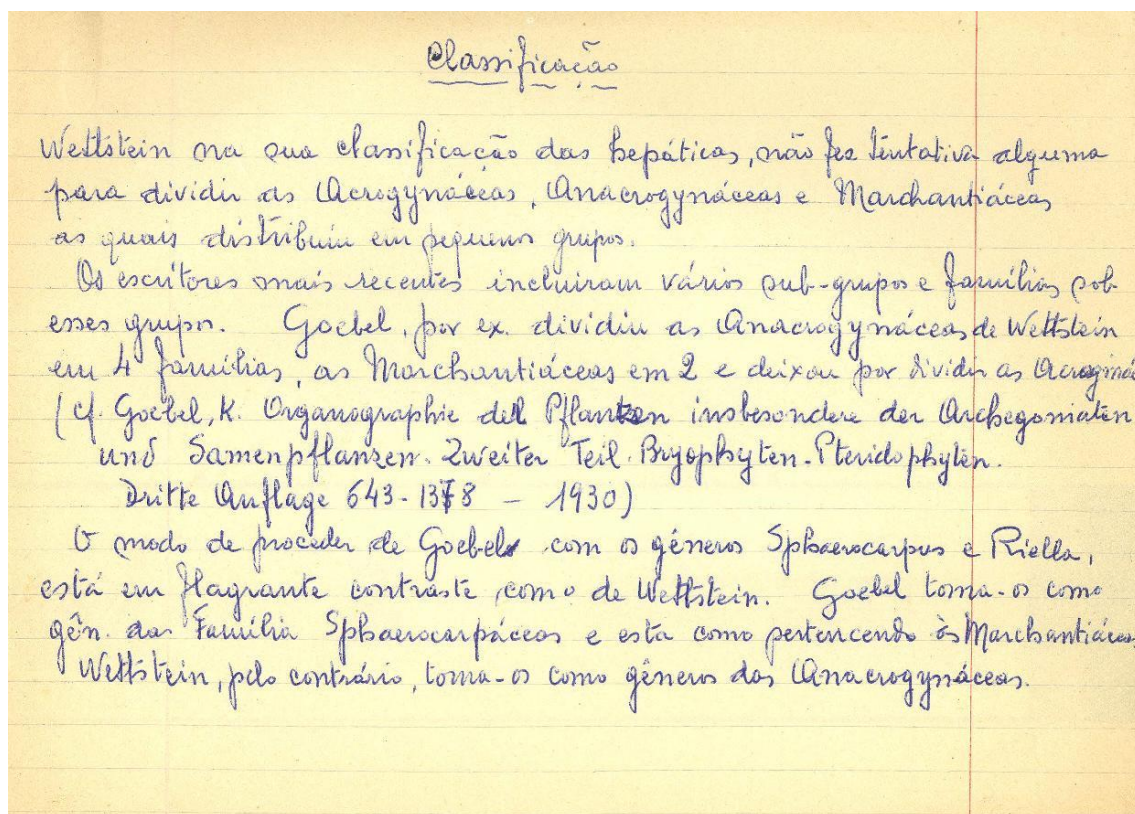 Classificação
Wettstein na sua classificação das hepáticas, não fez tentativa alguma
para dividir as Acrogynáceas, Anacrogynáceas e Marchantiáceas
as quais distribuiu em pequenos grupos.
Os escritores mais recentes incluiram vários sub-grupos e famílias sob
esses grupos. Goebel, por ex. dividiu as Anacrogynáceas de Wettstein
em 4 famílias, as Marchantiáceas em 2 e deixou por dividir as Acroginá
(cf. Goebel, K. Organographie der Pflanzen insbesondere der Archegoniaten
und Samenpflanzen. Zweiter Teil. Bryophyten-Pteridophyten.
Dritte Auflage 643-1378 – 1930)
O modo de proceder de Goebel com os géneros Sphaerocarpus e Riella,
está em flagrante contraste com o de Wettstein. Goebel toma-os como
gên. das Família Sphaerocarpáceas e esta como pertencendo às Marchantiáceas,
Wettstein, pelo contrário, toma-os como gêneros das Anacrogynáceas.